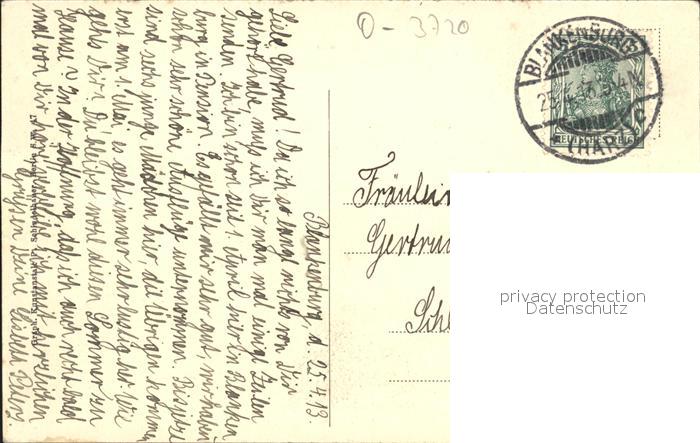 O - 3720
BLANKENBURG
25.4.13. 5-6 N.
(HARZ)
DEUTSCHES REICH
Blankenburg, d. 25.4.13.
Liebe Gertrud! Da ich so lang nichts von Dir
gehört habe, muß ich Dir nun mal einige Zeilen
senden. Ich bin schon seit 1. April hier in Blanken
burg in Pension. Es gefällt mir sehr gut, wir haben
schon sehr schöne Ausflüge unternommen. Bis jetzt
sind sechs junge Mädchen hier, die Übrigen kommen
erst am 1. Mai. es geht immer sehr lustig her. Wie
gehts Dir? Du bleibst wohl diesen Sommer zu
Hause? In der Hoffnung, daß ich auch recht bald
mal von Dir höre, verbleibe ich mit herzlichen
Grüßen Deine
Fräulein
Gertru
Schl
privacy protection
Datenschutz